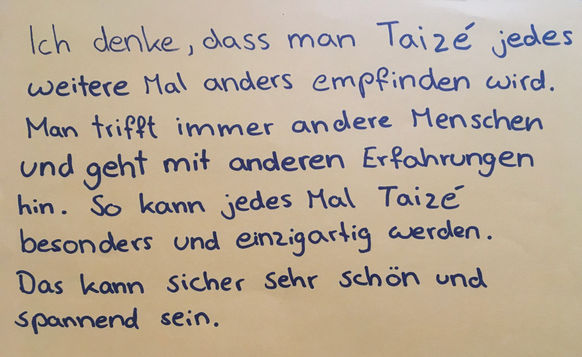 Ich denke, dass man Taizé jedes
weitere Mal anders empfinden wird.
Man trifft immer andere Menschen
und geht mit anderen Erfahrungen
hin. So kann jedes Mal Taizé
besonders und einzigartig werden.
Das kann sicher sehr schön und
spannend sein.